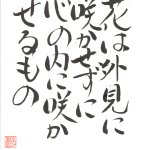 花は外見に
咲かせずに
心の内に咲か
せるもの